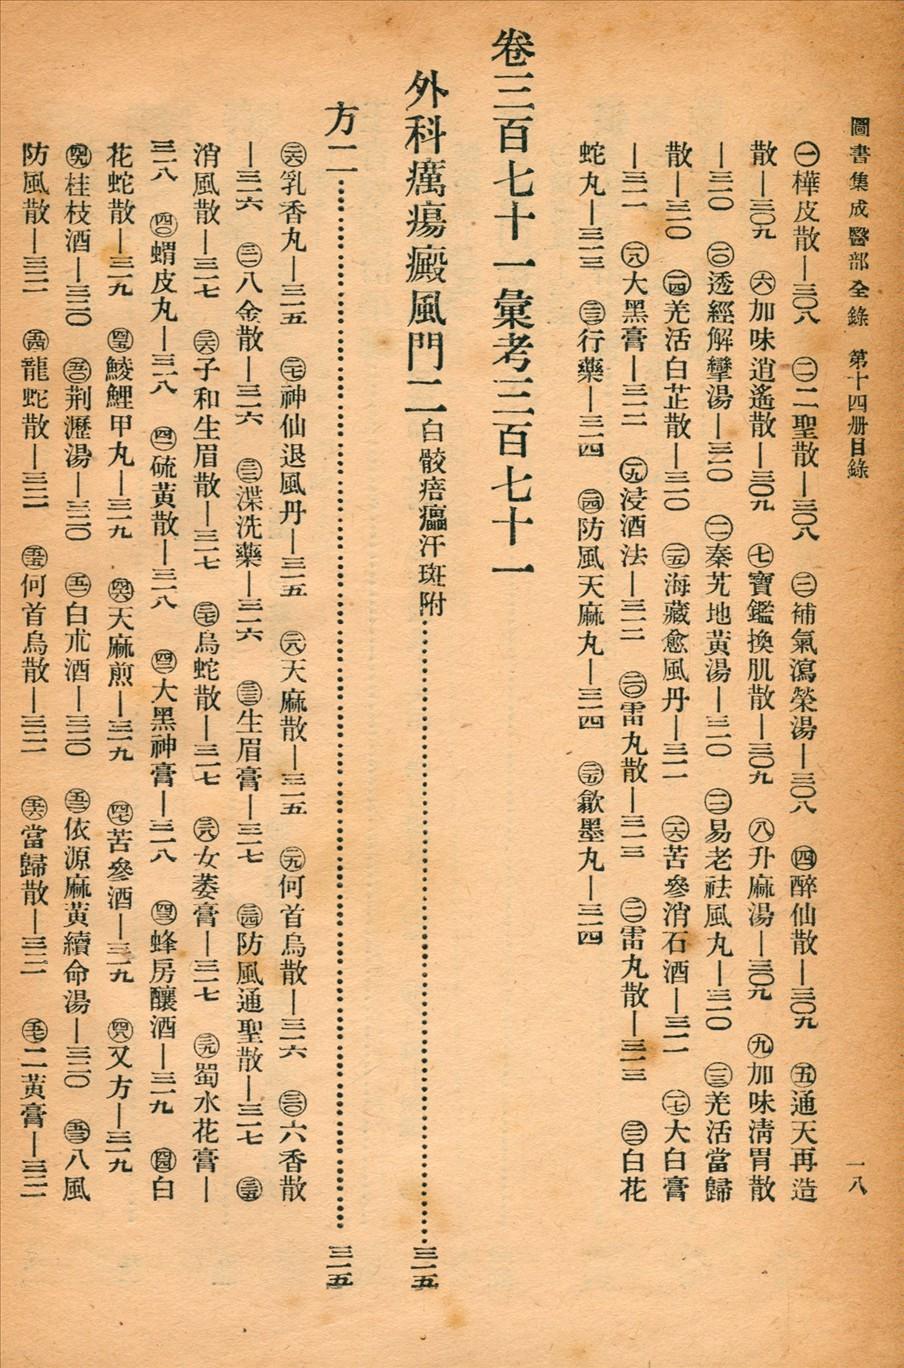 圖書集成醫部全錄　第十四册目錄　一八
㊀樺皮散—三〇八　㊁二聖散—三〇八　㊂補氣瀉榮湯—三〇八　㊃醉仙散—三〇九　㊄通天再造
散—三〇九　㊅加味逍遙散—三〇九　㊆寶鑑換肌散—三〇九　㊇升麻湯—三〇九　㊈加味淸胃散
—三一〇　㊉透經解攣湯—三一〇　㈠㈠秦艽地黃湯—三一〇　㈠㈡易老祛風丸—三一〇　㈠㈢羌活當歸
散—三一〇　㈠㈣羌活白芷散—三一〇　㈠㈤海藏愈風丹—三一一　㈠㈥苦參消石酒—三一一　㈠㈦大白膏
—三一一　㈠㈧大黑膏—三一二　㈠㈨浸酒法—三一二　㈡〇雷丸散—三一三　㈡㈠雷丸散—三一三　㈡㈡白花
蛇丸—三一三　㈡㈢行藥—三一四　㈡㈣防風天麻丸—三一四　㈡㈤歙墨丸—三一四
卷三百七十一彙考三百七十一
外科癘瘍癜風門二白骹痦㿔汗斑附……三一五
方二……三一五
㈡㈥乳香丸—三一五　㈡㈦神仙退風丹—三一五　㈡㈧天麻散—三一五　㈡㈨何首烏散—三一六　㈢〇六香散
—三一六　㈢㈠八金散—三一六　㈢㈡渫洗藥—三一六　㈢㈢生眉膏—三一七　㈢㈣防風通聖散—三一七　㈢㈤
消風散—三一七　㈢㈥子和生眉散—三一七　㈢㈦烏蛇散—三一七　㈢㈧女萎膏—三一七　㈢㈨蜀水花膏—
三一八　㈣〇蝟皮丸—三一八　㈣㈠硫黃散—三一八　㈣㈡大黑神膏—三一八　㈣㈢蜂房釀酒—三一九　㈣㈣白
花蛇散—三一九　㈣㈤鯪鯉甲丸—三一九　㈣㈥天麻煎—三一九　㈣㈦苦參酒—三一九　㈣㈧又方—三一九
㈣㈨桂枝酒—三二〇　㈤〇荆瀝湯—三二〇　㈤㈠白朮酒—三二〇　㈤㈡依源麻黃續命湯—三二〇　㈤㈢八風
防風散—三二一　㈤㈣龍蛇散—三二一　㈤㈤何首烏散—三二一　㈤㈥當歸散—三二一　㈤㈦二黃膏—三二一